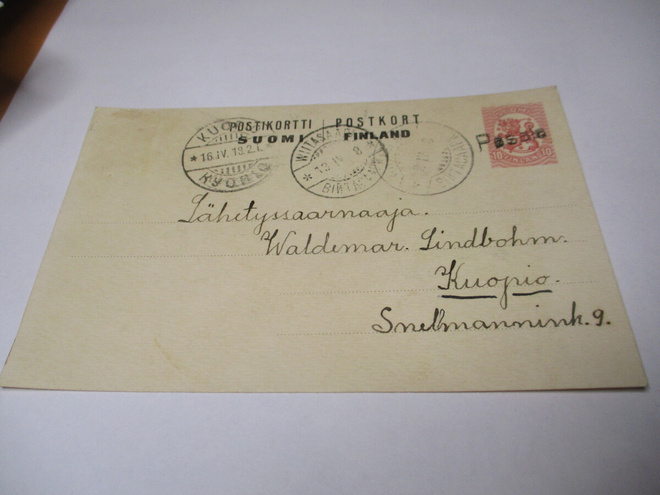 POSTIKORTTI | POSTKORT
SUOMI FINLAND
KUOPIO
* 16.IV.18.2.
KUOPIO
WIITASAARI
* 13.IV. 8
10 10
Lähetyssaarnaaja.
Waldemar. Lindbohm.
Kuopio.
Snelmannink. 9.